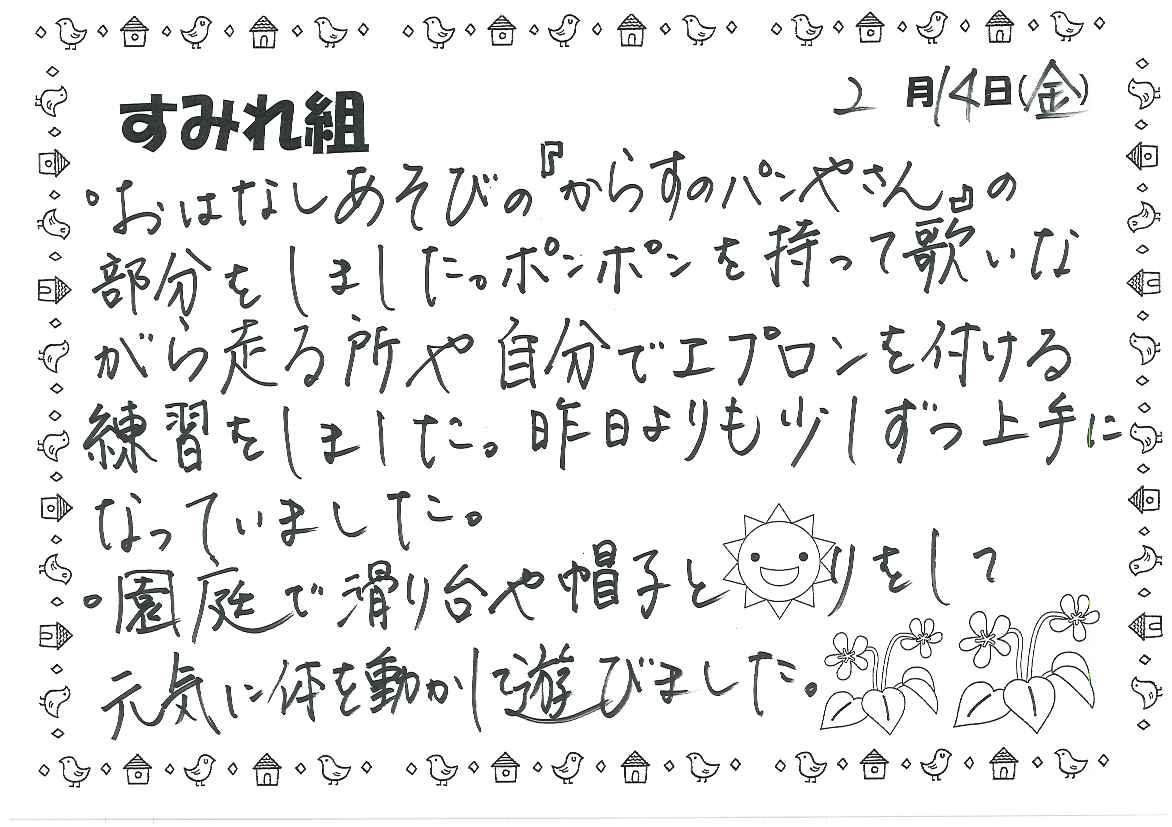 すみれ組
2月14日(金)
・おはなしあそびの『からすのパンやさん』の
部分をしました。ポンポンを持って歌いな
がら走る所や自分でエプロンを付ける
練習をしました。昨日よりも少しずつ上手に
なっていました。
・園庭で滑り台や帽子とりをして
元気に体を動かして遊びました。